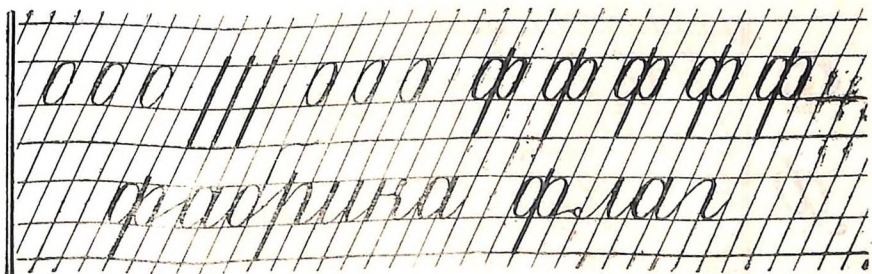 о о о ||| о о о ф ф ф ф ф
фабрика флаг